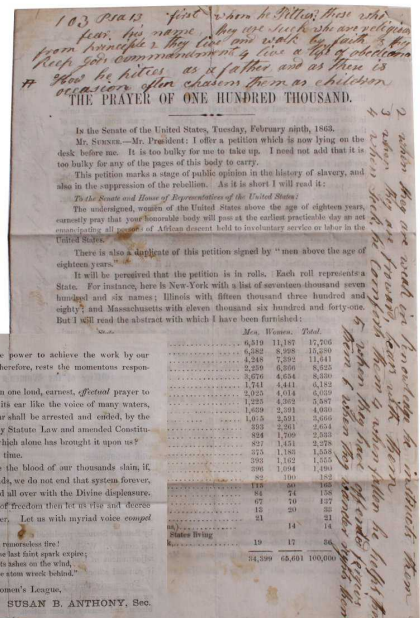 103 Psa 13 first whom he Pitties; those who
fear his name they are such who are religious
from principle & they live and walk by faith & they
keep Gods commandments & live a life of obediance
How he pities as a father and as there is
occasion often chasens them as children
THE PRAYER OF ONE HUNDRED THOUSAND.
In the Senate of the United States, Tuesday, February ninth, 1863.
Mr. SUMNER.—Mr. President: I offer a petition which is now lying on the
desk before me. It is too bulky for me to take up. I need not add that it is
too bulky for any of the pages of this body to carry.
This petition marks a stage of public opinion in the history of slavery, and
also in the suppression of the rebellion. As it is short I will read it:
To the Senate and House of Representatives of the United States:
The undersigned, women of the United States above the age of eighteen years,
earnestly pray that your honorable body will pass at the earliest practicable day an act
emancipating all persons of African descent held to involuntary service or labor in the
United States.
There is also a duplicate of this petition signed by "men above the age of
eighteen years."
It will be perceived that the petition is in rolls. Each roll represents a
State. For instance, here is New-York with a list of seventeen thousand seven
hundred and six names; Illinois with fifteen thousand three hundred and
eighty; and Massachusetts with eleven thousand six hundred and forty-one.
But I will read the abstract with which I have been furnished:
Men. Women. Total.
6,519 11,187 17,706
6,382 8,998 15,380
4,248 7,392 11,641
2,259 6,366 8,625
3,676 4,654 8,330
1,741 4,441 6,182
2,025 4,014 6,039
1,225 4,362 5,587
1,639 2,391 4,030
1,015 2,581 3,666
393 2,261 2,654
824 1,709 2,533
827 1,451 2,278
375 1,183 1,558
393 1,162 1,555
396 1,094 1,490
82 100 182
113 50 163
84 74 158
67 70 137
13 20 33
21 21
14 14
States living
19 17 36
34,399 65,601 100,000
e power to achieve the work by our
herefore, rests the momentous respon-
n one loud, earnest, effectual prayer to
its ear like the voice of many waters,
ar shall be arrested and ended, by the
y Statute Law and amended Constitu-
which alone has brought it upon us?
time.
e the blood of our thousands slain, if,
ds, we do not end that system forever,
d all over with the Divine displeasure.
of freedom then let us rise and decree
er. Let us with myriad voice compel
remorseless fire!
he last faint spark expire;
ts ashes on the wind,
e atom wreck behind."
omen's League,
SUSAN B. ANTHONY, Sec.